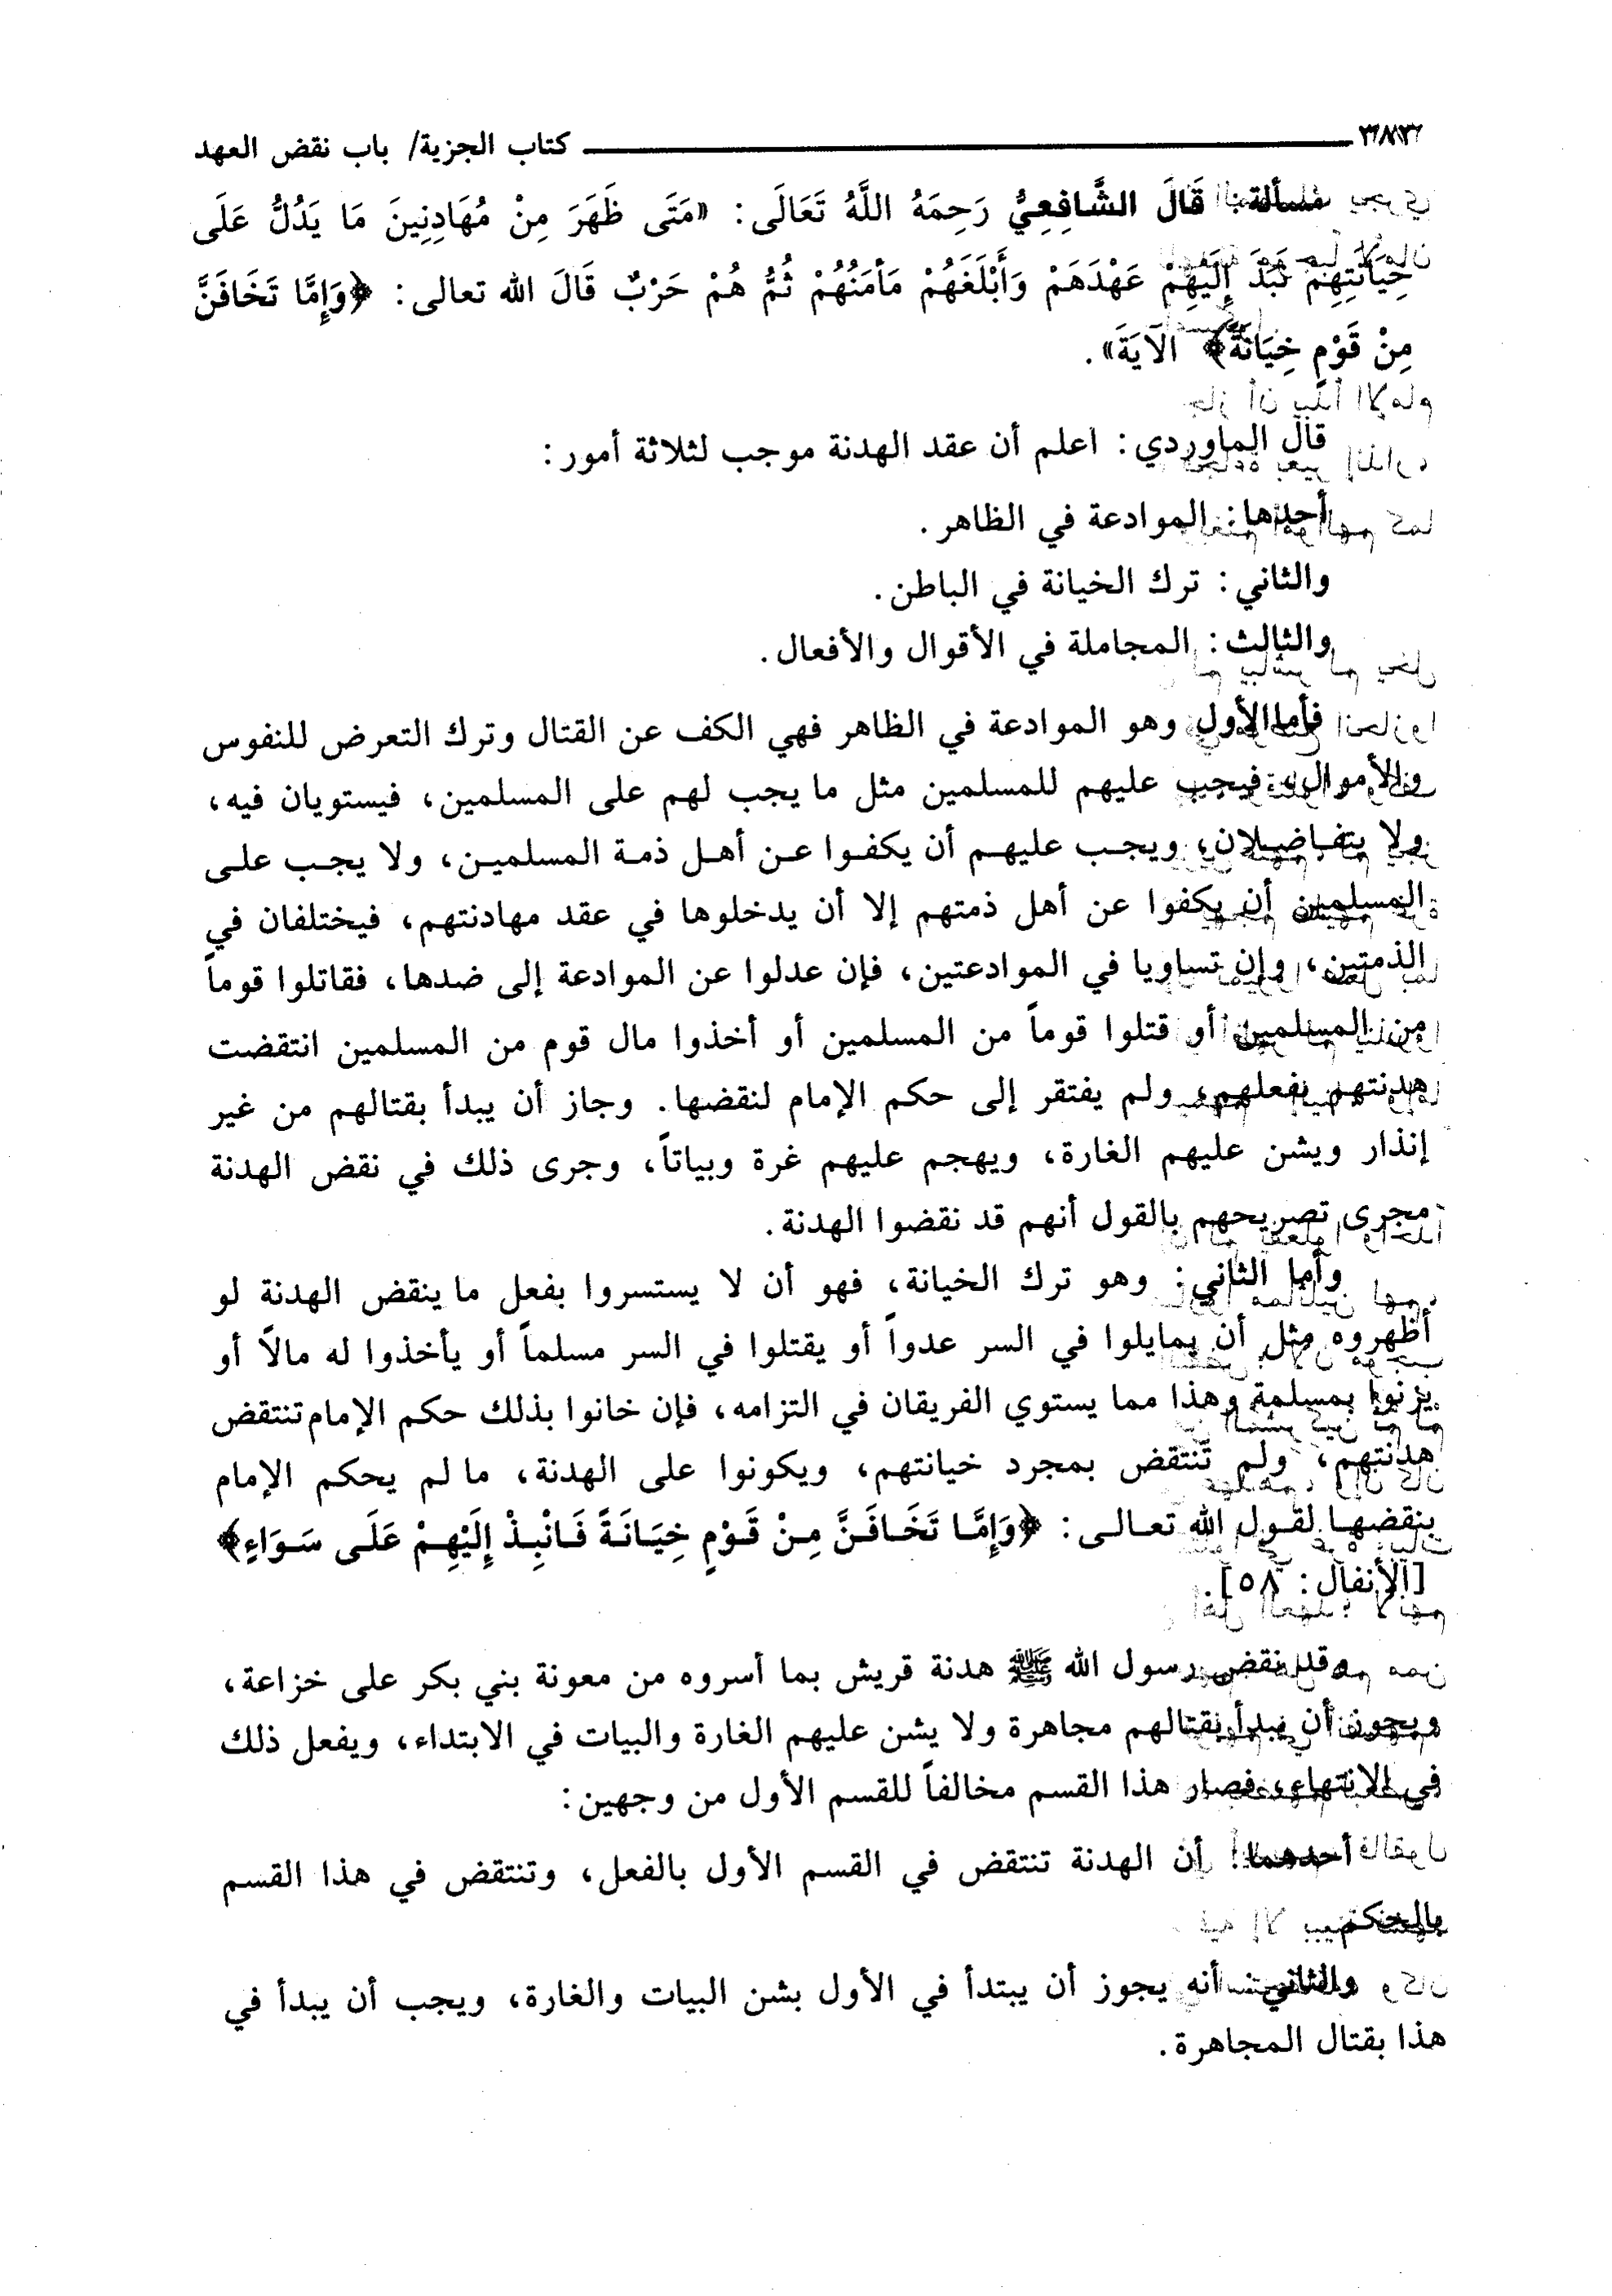 كتاب الجزية/ باب نقض العهد
مسألة: قَالَ الشَّافِعِيُّ رَحِمَهُ اللَّهُ تَعَالَى: «مَتَى ظَهَرَ مِنْ مُهَادِنِينَ مَا يَدُلُّ عَلَى
خِيَانَتِهِمْ نَبَذَ إِلَيْهِمْ عَهْدَهَمْ وَأَبْلَغَهُمْ مَأمَنُهُمْ ثُمُّ هُمْ حَرْبٌ قَالَ الله تعالى: ﴿وَإِمَّا تَخَافَنَّ
مِنْ قَوْمٍ خِيَانَةً﴾ الآيَةَ».
قال الماوردي: اعلم أن عقد الهدنة موجب لثلاثة أمور:
أحدها: الموادعة في الظاهر.
والثاني: ترك الخيانة في الباطن.
والثالث: المجاملة في الأقوال والأفعال.
فأما الأول وهو الموادعة في الظاهر فهي الكف عن القتال وترك التعرض للنفوس
والأموال، فيجب عليهم للمسلمين مثل ما يجب لهم على المسلمين، فيستويان فيه،
ولا يتفاضلان، ويجب عليهم أن يكفوا عن أهل ذمة المسلمين، ولا يجب على
المسلمين أن يكفوا عن أهل ذمتهم إلا أن يدخلوها في عقد مهادنتهم، فيختلفان في
الذمتين، وإن تساويا في الموادعتين، فإن عدلوا عن الموادعة إلى ضدها، فقاتلوا قوماً
من المسلمين أو قتلوا قوماً من المسلمين أو أخذوا مال قوم من المسلمين انتقضت
هدنتهم بفعلهم، ولم يفتقر إلى حكم الإمام لنقضها. وجاز أن يبدأ بقتالهم من غير
إنذار ويشن عليهم الغارة، ويهجم عليهم غرة وبياتاً، وجرى ذلك في نقض الهدنة
مجرى تصريحهم بالقول أنهم قد نقضوا الهدنة.
وأما الثاني: وهو ترك الخيانة، فهو أن لا يستسروا بفعل ما ينقض الهدنة لو
أظهروه مثل أن يمايلوا في السر عدواً أو يقتلوا في السر مسلماً أو يأخذوا له مالًا أو
يزنوا بمسلمة وهذا مما يستوي الفريقان في التزامه، فإن خانوا بذلك حكم الإمام تنتقض
هدنتهم، ولم تنتقض بمجرد خيانتهم، ويكونوا على الهدنة، ما لم يحكم الإمام
بنقضها لقول الله تعالى: ﴿وَإِمَّا تَخَافَنَّ مِنْ قَوْمٍ خِيَانَةً فَانْبِذْ إِلَيْهِمْ عَلَى سَوَاءٍ﴾
[الأنفال: ٥٨].
وقد نقض رسول الله ﷺ هدنة قريش بما أسروه من معونة بني بكر على خزاعة،
ويجوز أن نبدأ بقتالهم مجاهرة ولا يشن عليهم الغارة والبيات في الابتداء، ويفعل ذلك
في الانتهاء، فصار هذا القسم مخالفاً للقسم الأول من وجهين:
أحدهما: أن الهدنة تنتقض في القسم الأول بالفعل، وتنتقض في هذا القسم
بالحكم
والثاني: أنه يجوز أن يبتدأ في الأول بشن البيات والغارة، ويجب أن يبدأ في
هذا بقتال المجاهرة.